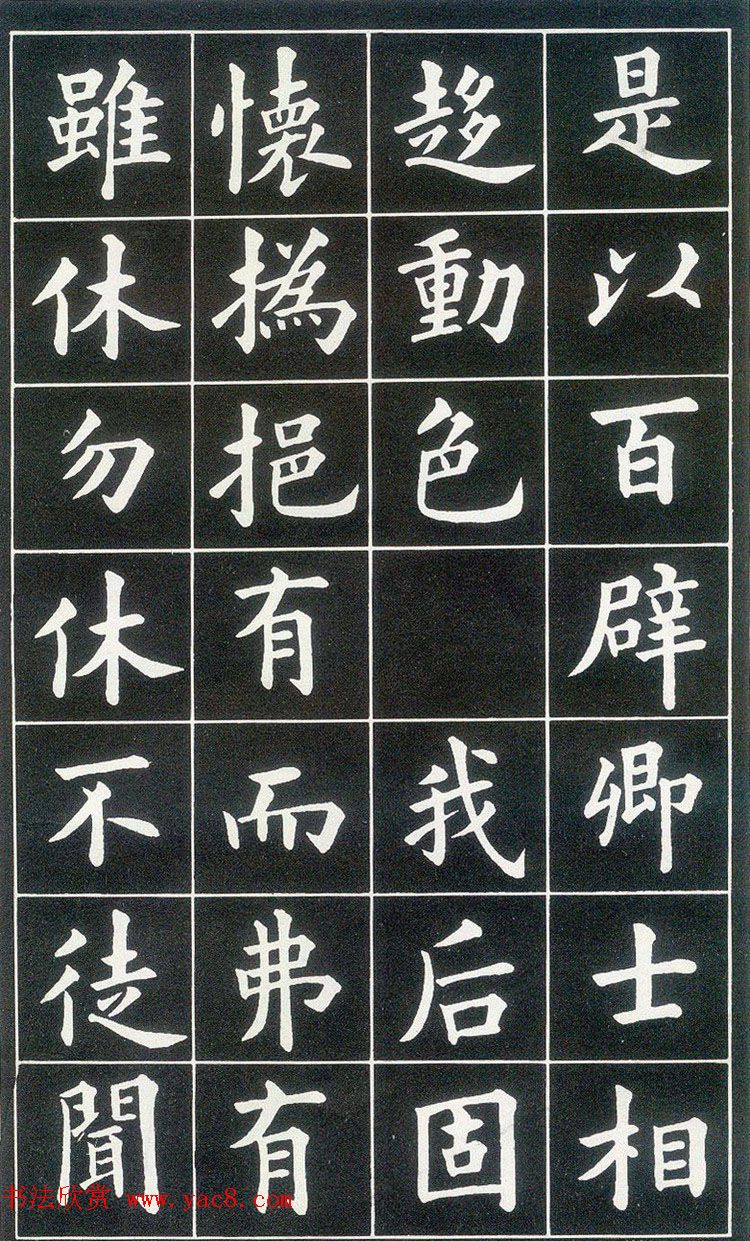 是以百辟卿士相
趍動色 我后固
懷撝挹有而弗有
雖休勿休不徒聞
书法欣赏 www.yac8.com